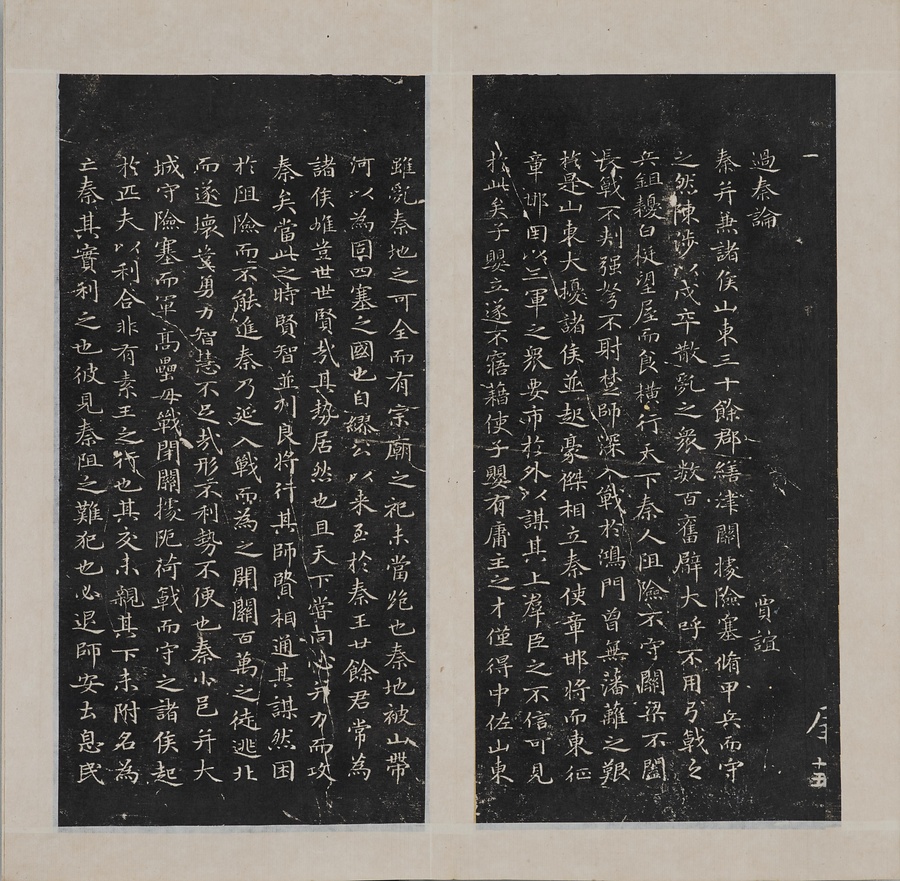 一
過秦論
賈誼
秦并兼諸侯山東三十餘郡繕津關據險塞脩甲兵而守
之然陳涉以戍卒散亂之衆數百奮臂大呼不用弓戟之
兵鉏耰白梃望屋而食橫行天下秦人阻險不守關梁不闔
長戟不刺强弩不射楚師深入戰於鴻門曾無藩蘺之艱
於是山東大擾諸侯並起豪傑相立秦使章邯將而東征
章邯因以三軍之衆要市於外以謀其上羣臣之不信可見
於此矣子嬰立遂不寤藉使子嬰有庸主之才僅得中佐山東
雖亂秦地之可全而有宗廟之祀未當絶也秦地被山帶
河以為固四塞之國也自繆公以來至於秦王廿餘君常為
諸侯雄豈世世賢哉其勢居然也且天下嘗同心并力而攻
秦矣當此之時賢智並列良將行其師賢相通其謀然困
於阻險而不能進秦乃延入戰而為之開關百萬之徒逃北
而遂壞豈勇力智慧不足哉形不利勢不便也秦小邑并大
城守險塞而軍高壘毋戰閉關據阨荷戟而守之諸侯起
於匹夫以利合非有素王之行也其交未親其下未附名為
亡秦其實利之也彼見秦阻之難犯也必退師安土息民